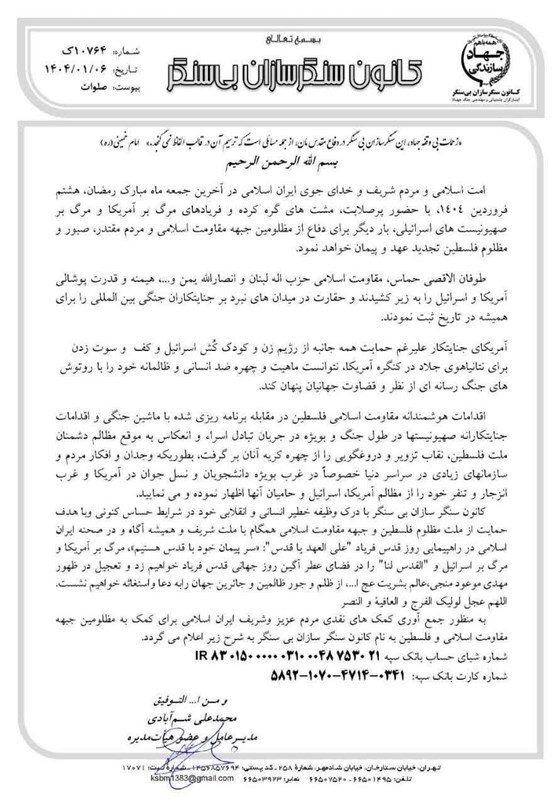 بسمه تعالی
کانون سنگرسازان بی‌سنگر
شماره: ۱۰۷۶۴ک
تاریخ: ۱۴۰۴/۰۱/۰۶
پیوست: صلوات
همه با هم
جهاد
سازندگی
کانون سنگرسازان بی‌سنگر
«زحمات بی وقفه جهاد، این سنگرسازان بی سنگر در دفاع مقدس مان، از جمله مسائلی است که ترسیم آن در قالب الفاظ نمی گنجد.» امام خمینی (ره)
بسم الله الرحمن الرحیم
امت اسلامی و مردم شریف و خدای جوی ایران اسلامی در آخرین جمعه ماه مبارک رمضان، هشتم
فروردین ۱۴۰۴، با حضور پرصلابت، مشت های گره کرده و فریادهای مرگ بر آمریکا و مرگ بر
صهیونیست های اسرائیلی، بار دیگر برای دفاع از مظلومین جبهه مقاومت اسلامی و مردم مقتدر، صبور و
مظلوم فلسطین تجدید عهد و پیمان خواهد نمود.
طوفان الاقصی حماس، مقاومت اسلامی حزب اله لبنان و انصارالله یمن و...، هیمنه و قدرت پوشالی
آمریکا و اسرائیل را به زیر کشیدند و حقارت در میدان های نبرد بر جنایتکاران جنگی بین المللی را برای
همیشه در تاریخ ثبت نمودند.
آمریکای جنایتکار علیرغم حمایت همه جانبه از رژیم زن و کودک کُش اسرائیل و کف و سوت زدن
برای نتانیاهوی جلاد در کنگره آمریکا، نتوانست ماهیت و چهره ضد انسانی و ظالمانه خود را با روتوش
های جنگ رسانه ای از نظر و قضاوت جهانیان پنهان کند.
اقدامات هوشمندانه مقاومت اسلامی فلسطین در مقابله برنامه ریزی شده با ماشین جنگی و اقدامات
جنایتکارانه صهیونیستها در طول جنگ و بویژه در جریان تبادل اسراء و انعکاس به موقع مظالم دشمنان
ملت فلسطین، نقاب تزویر و دروغگویی را از چهره کریه آنان بر گرفت، بطوریکه وجدان و افکار مردم و
سازمانهای زیادی در سراسر دنیا خصوصاً در غرب بویژه دانشجویان و نسل جوان در آمریکا و غرب
انزجار و تنفر خود را از مظالم آمریکا، اسرائیل و حامیان آنها اظهار نموده و می نمایید.
کانون سنگر سازان بی سنگر با درک وظیفه خطیر انسانی و انقلابی خود در شرایط حساس کنونی وبا هدف
حمایت از ملت مظلوم فلسطین و جبهه مقاومت اسلامی همگام با ملت شریف و همیشه آگاه و در صحنه ایران
اسلامی در راهپیمایی روز قدس فریاد "علی العهد یا قدس": «سر پیمان خود با قدس هستیم»، مرگ بر آمریکا و
مرگ بر اسرائیل و "القدس لنا" را در فضای عطر آگین روز جهانی قدس فریاد خواهیم زد و تعجیل در ظهور
مهدی موعود منجی،عالم بشریت عج ا...، از ظلم و جور ظالمین و جائرین جهان رابه دعا واستغاثه خواهیم نشست.
اللهم عجل لولیک الفرج و العافیة و النصر
به منظور جمع آوری کمک های نقدی مردم عزیز وشریف ایران اسلامی برای کمک به مظلومین جبهه
مقاومت اسلامی و فلسطین به نام کانون سنگر سازان بی سنگر به شرح زیر اعلام می گردد.
شماره شبای حساب بانک سپه: IR ۸۳ ۰۱۵۰ ۰۰۰۰ ۰۳۱۰ ۰۰۴۸ ۷۵۳۰ ۲۱
شماره کارت بانک سپه: ۵۸۹۲-۱۰۷۰-۴۷۱۴-۰۳۴۱
و من ا... التوفیق
محمدعلی شم‌آبادی
مدیرعامل و عضو هیات‌مدیره
تهران، خیابان ستارخان، خیابان شادمهر، شمارهٔ ۲۵۸ ـ کد پستی: ۱۴۵۶۸۵۷۶۹۴ ـ شماره ثبت: ۱۷۰۷۱
تلفن: ۶۶۵۰۱۴۹۵ - ۶۶۵۰۷۵۲۰ نمابر: ۶۶۵۰۳۹۲۳ ksbm1383@gmail.com